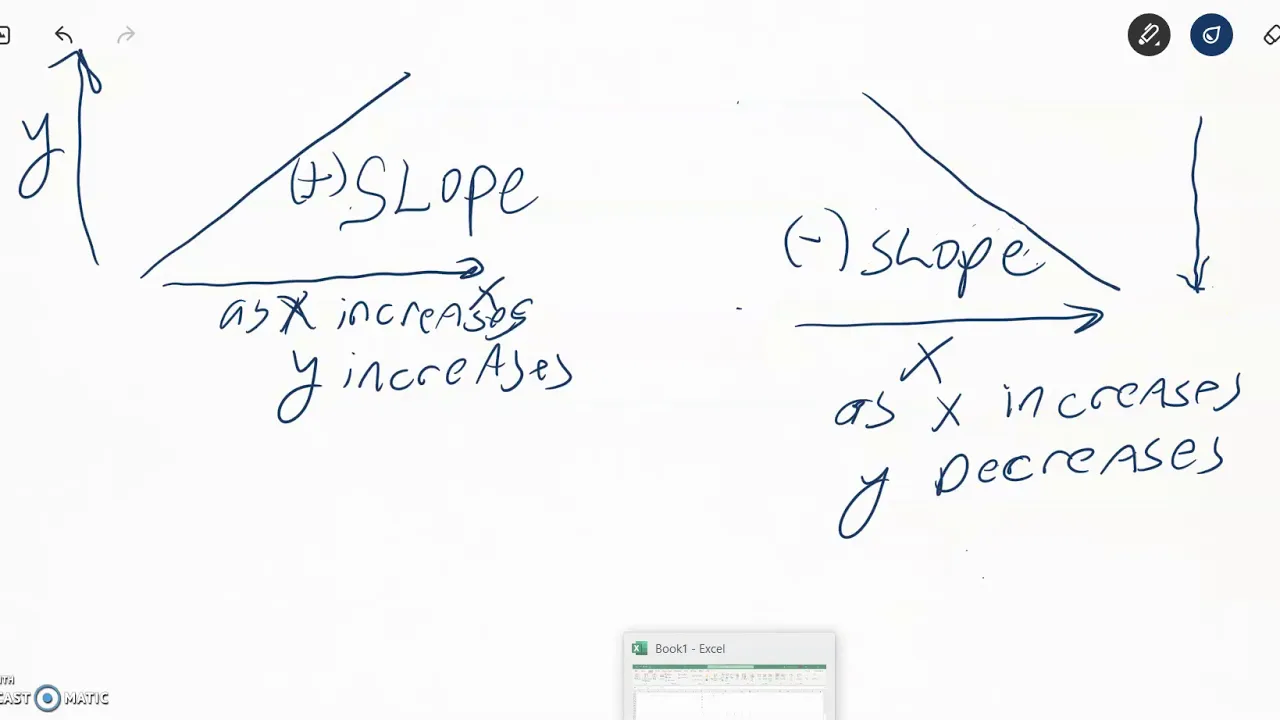 y
(+) SLOPE
x
as x increases
y increases
(-) SLOPE
x
as x increases
y Decreases
Book1 - Excel
CAST MATIC